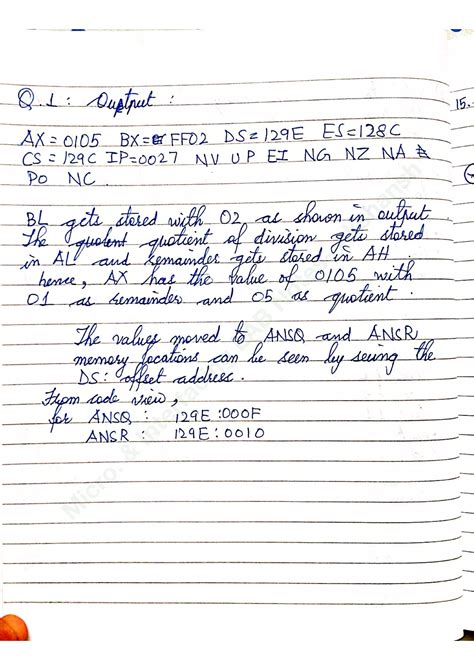 Q.1: Output :
15.
AX = 0105 BX = FF02 DS = 129E ES = 128C
CS = 129C IP=0027 NV UP EI NG NZ NA
PO NC.
BL gets stored with 02 as shown in output
The quotent quotient of division gets stored
in AL and remainder gets stored in AH.
hence, AX has the value of 0105 with
01 as remainder and 05 as quotient.
The values moved to ANSQ and ANSR
memory locations can be seen by seing the
DS: offset address.
From code view,
for ANSQ : 129E:000F
ANSR : 129E:0010
Micro. &